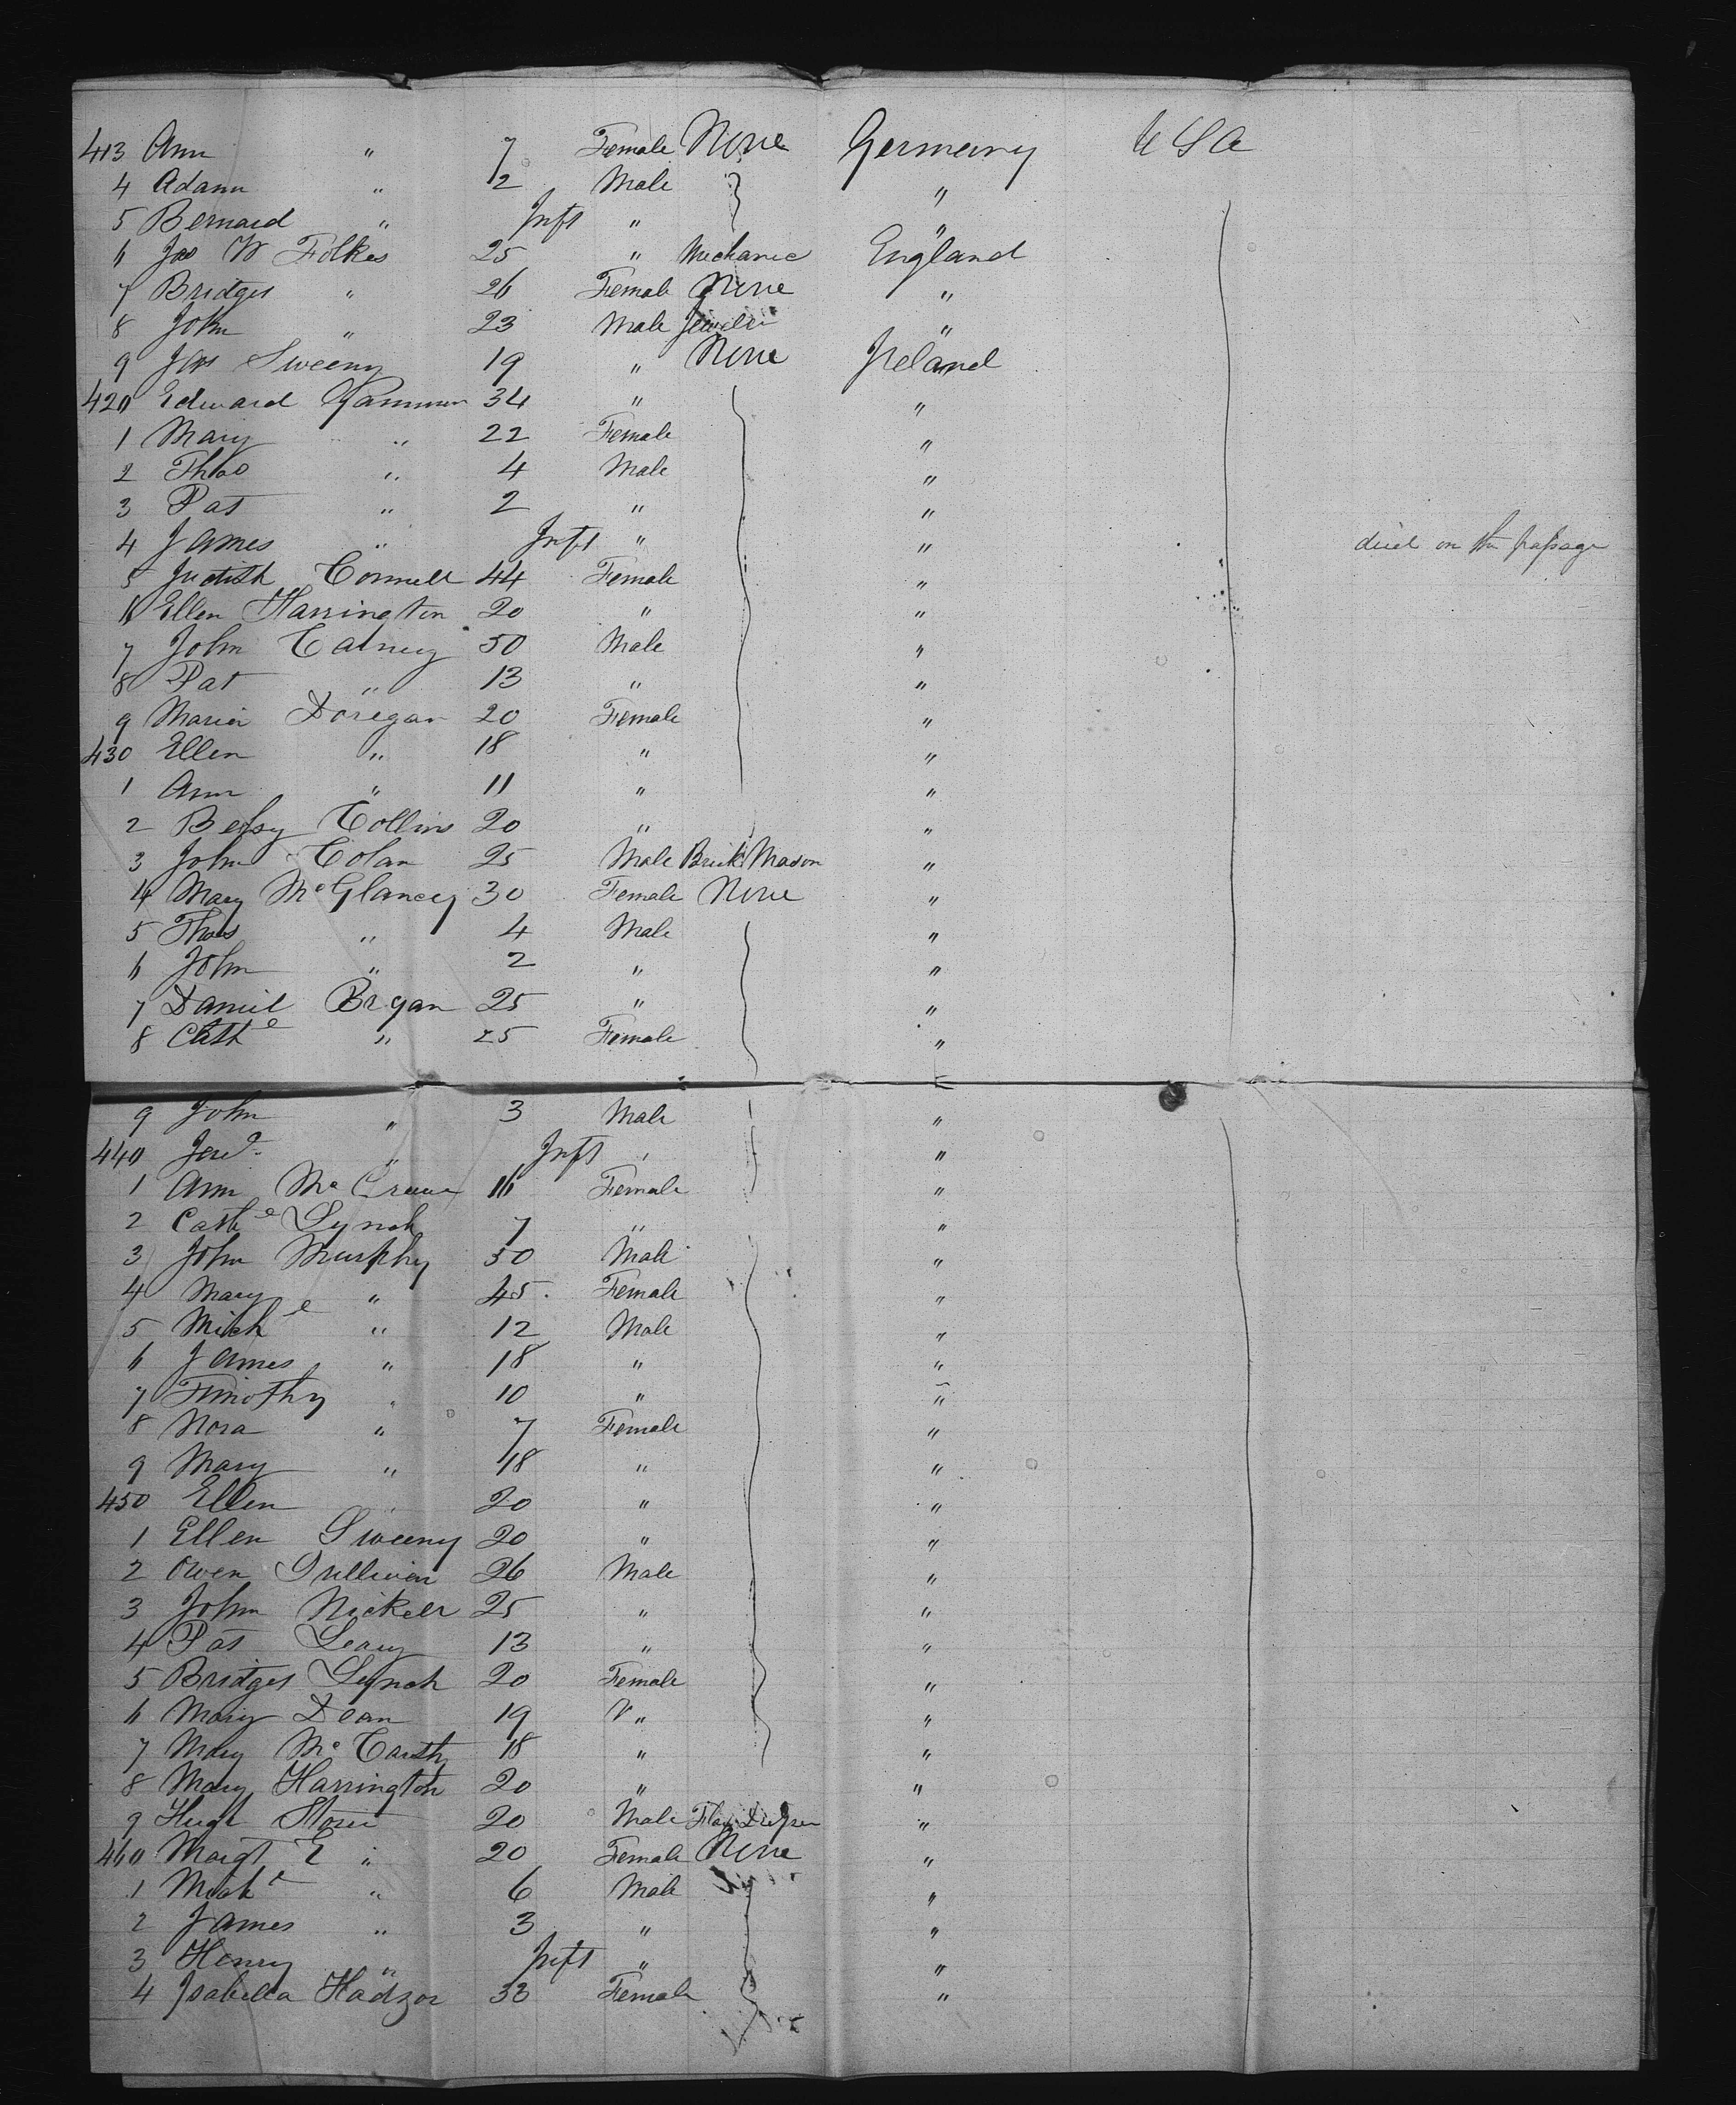 413 Ann " 7 Female None Germany U S A
4 Adam " 2 Male "
5 Bernard " Inft " "
6 Jas W Folkes 25 " Mechanic England
7 Bridget " 26 Female None "
8 John " 23 Male Jeweler "
9 Jas Sweeny 19 " None Ireland
420 Edward Gammon 34 " "
1 Mary " 22 Female "
2 Thos " 4 Male "
3 Pat " 2 " "
4 James " Inft " " died on the passage
5 Judith Connell 44 Female "
6 Ellen Harrington 20 " "
7 John 50 Male "
8 Pat " 13 " "
9 Maria Doregan 20 Female "
430 Ellen " 18 " "
1 Ann " 11 " "
2 Betsy Collins 20 " "
3 John Colan 25 Male Brick Mason "
4 Mary McGlancy 30 Female None "
5 Thos " 4 Male "
6 John " 2 " "
7 Daniel Bryan 25 " "
8 Cathe " 25 Female "
9 John " 3 Male "
440 " Inft " "
1 Ann 16 Female "
2 Cathe Lynch 7 " "
3 John Murphy 50 Male "
4 Mary " 45 Female "
5 Michl " 12 Male "
6 James " 18 " "
7 Timothy " 10 " "
8 Nora " 7 Female "
9 Mary " 18 " "
450 Ellen " 20 " "
1 Ellen Sweeny 20 " "
2 Owen Sullivan 26 Male "
3 John Nickell 25 " "
4 Pat Leary 13 " "
5 Bridget Lynch 20 Female "
6 Mary Dean 19 " "
7 Mary McCarthy 18 " "
8 Mary Harrington 20 " "
9 Hugh Stone 20 Male Flax Dresser "
460 Margt E " 20 Female None "
1 Michl " 6 Male "
2 James " 3 " "
3 Henry " Inft " "
4 Isabella Hadzor 33 Female "